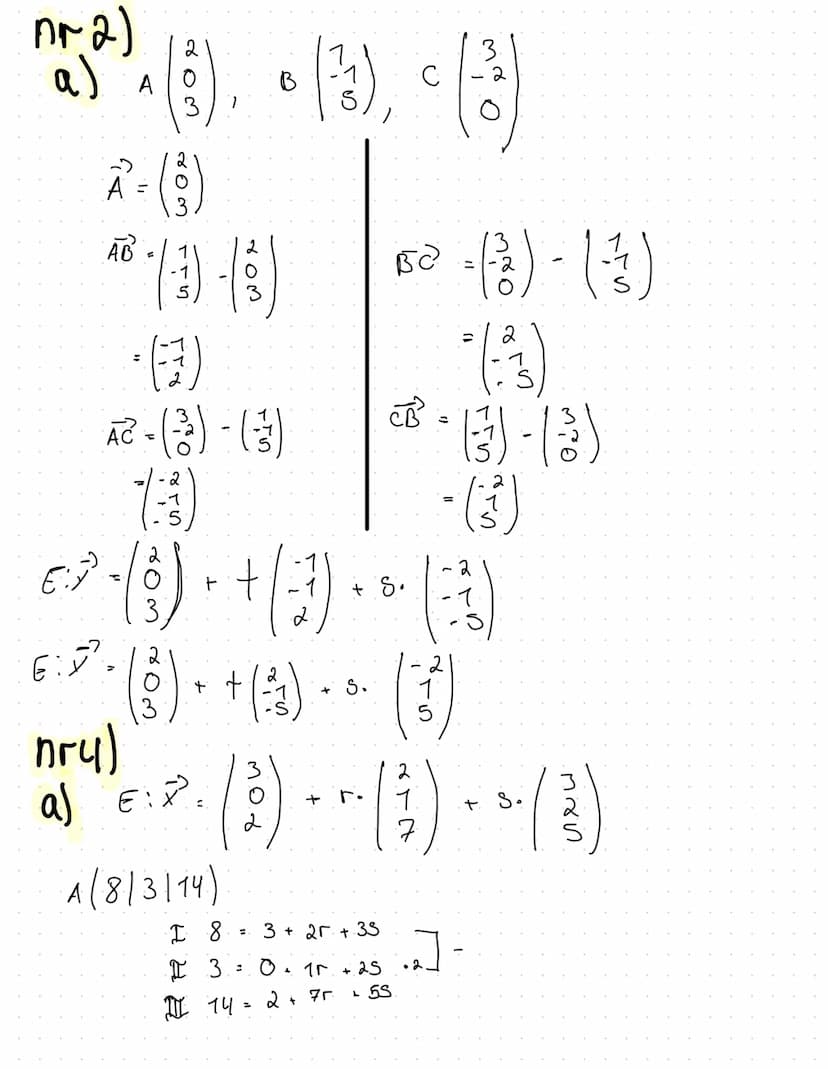 nr 2)
a) A (2 0 3), B (1 -1 5), C (3 -2 0)
A⃗ = (2 0 3)
AB⃗ = (1 -1 5) - (2 0 3)
= (-1 -1 2)
AC⃗ = (3 -2 0) - (1 -1 5)
= (-2 -1 -5)
BC⃗ = (3 -2 0) - (1 -1 5)
= (2 -1 -5)
CB⃗ = (1 -1 5) - (3 -2 0)
= (-2 1 5)
E: x⃗ = (2 0 3) + t (-1 -1 2) + s · (-2 -1 -5)
E: x⃗ = (2 0 3) + t (2 -1 -5) + s · (-2 1 5)
nr 4)
a) E: x⃗ = (3 0 2) + r · (2 1 7) + s · (3 2 5)
A (8|3|14)
I 8 = 3 + 2r + 3s
II 3 = 0 + 1r + 2s ·2 ] -
III 14 = 2 + 7r + 5s